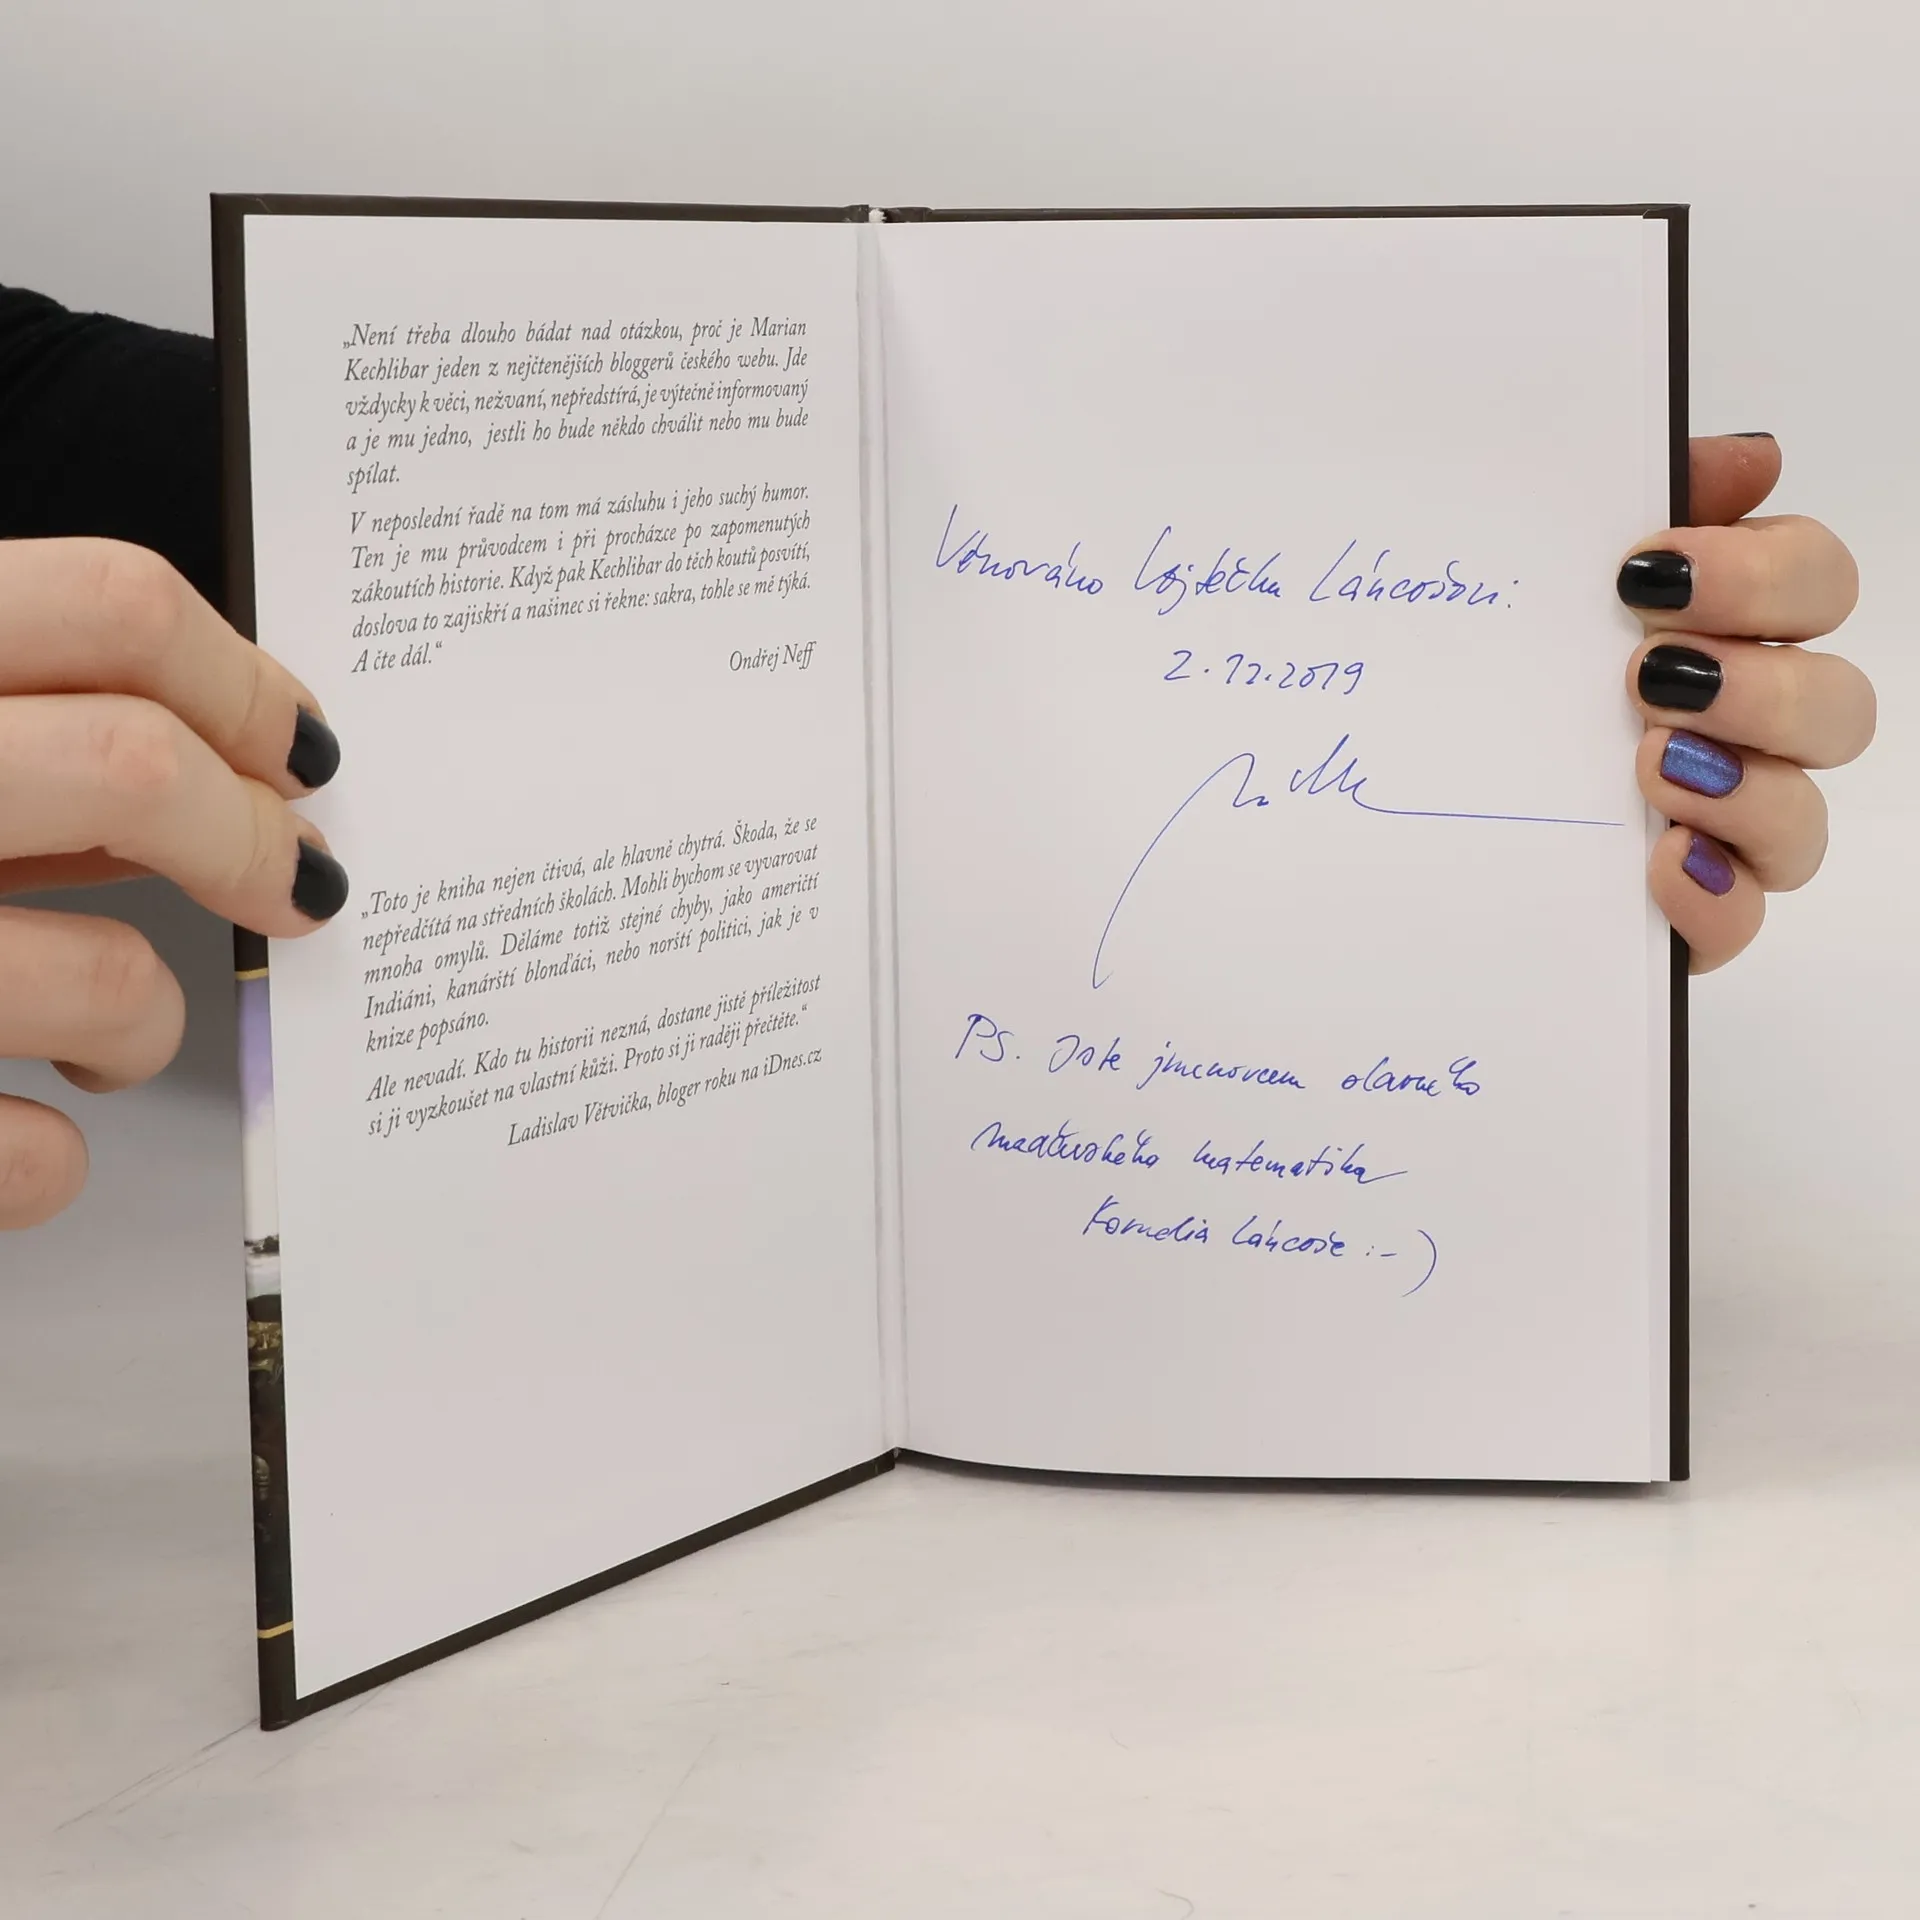 „Není třeba dlouho bádat nad otázkou, proč je Marian
Kechlibar jeden z nejčtenějších bloggerů českého webu. Jde
vždycky k věci, nežvaní, nepředstírá, je výtečně informovaný
a je mu jedno, jestli ho bude někdo chválit nebo mu bude
spílat.
V neposlední řadě na tom má zásluhu i jeho suchý humor.
Ten je mu průvodcem i při procházce po zapomenutých
zákoutích historie. Když pak Kechlibar do těch koutů posvítí,
doslova to zajiskří a našinec si řekne: sakra, tohle se mě týká.
A čte dál.“
Ondřej Neff
„Toto je kniha nejen čtivá, ale hlavně chytrá. Škoda, že se
nepředčítá na středních školách. Mohli bychom se vyvarovat
mnoha omylů. Děláme totiž stejné chyby, jako američtí
Indiáni, kanárští blonďáci, nebo norští politici, jak je v
knize popsáno.
Ale nevadí. Kdo tu historii nezná, dostane jistě příležitost
si ji vyzkoušet na vlastní kůži. Proto si ji raději přečtěte.“
Ladislav Větvička, bloger roku na iDnes.cz
Věnováno Vojtěchu Láncošovi:
2.12.2019
PS. Jste jmenovcem slavného
maďarského matematika
Kornelia Láncose :-)